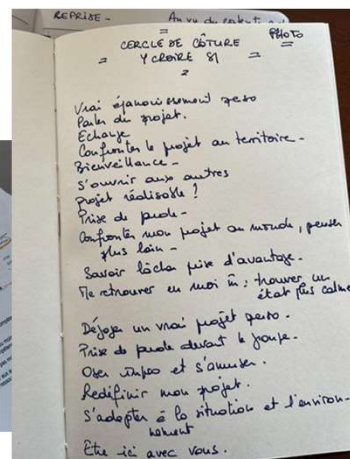 REPRISE -
Au vu du
PHOTO
CERCLE DE CÔTURE
Y CROIRE 81
Vrai épanouissement perso
Parler du projet.
Echange
Confronter le projet au territoire -
Bienveillance -
S'ouvrir aux autres
Projet réalisable ?
Prise de parole -
Confronter mon projet au monde, penser
plus loin -
Savoir lâcher prise d'avantage.
Me retrouver en moi m̂ : trouver un
état plus calme
Déjouer un vrai projet perso.
Prise de parole devant le groupe.
Oser impro et s'amuser.
Redéfinir mon projet.
S'adapter à la situation et l'environ-
nement
Être ici avec vous.